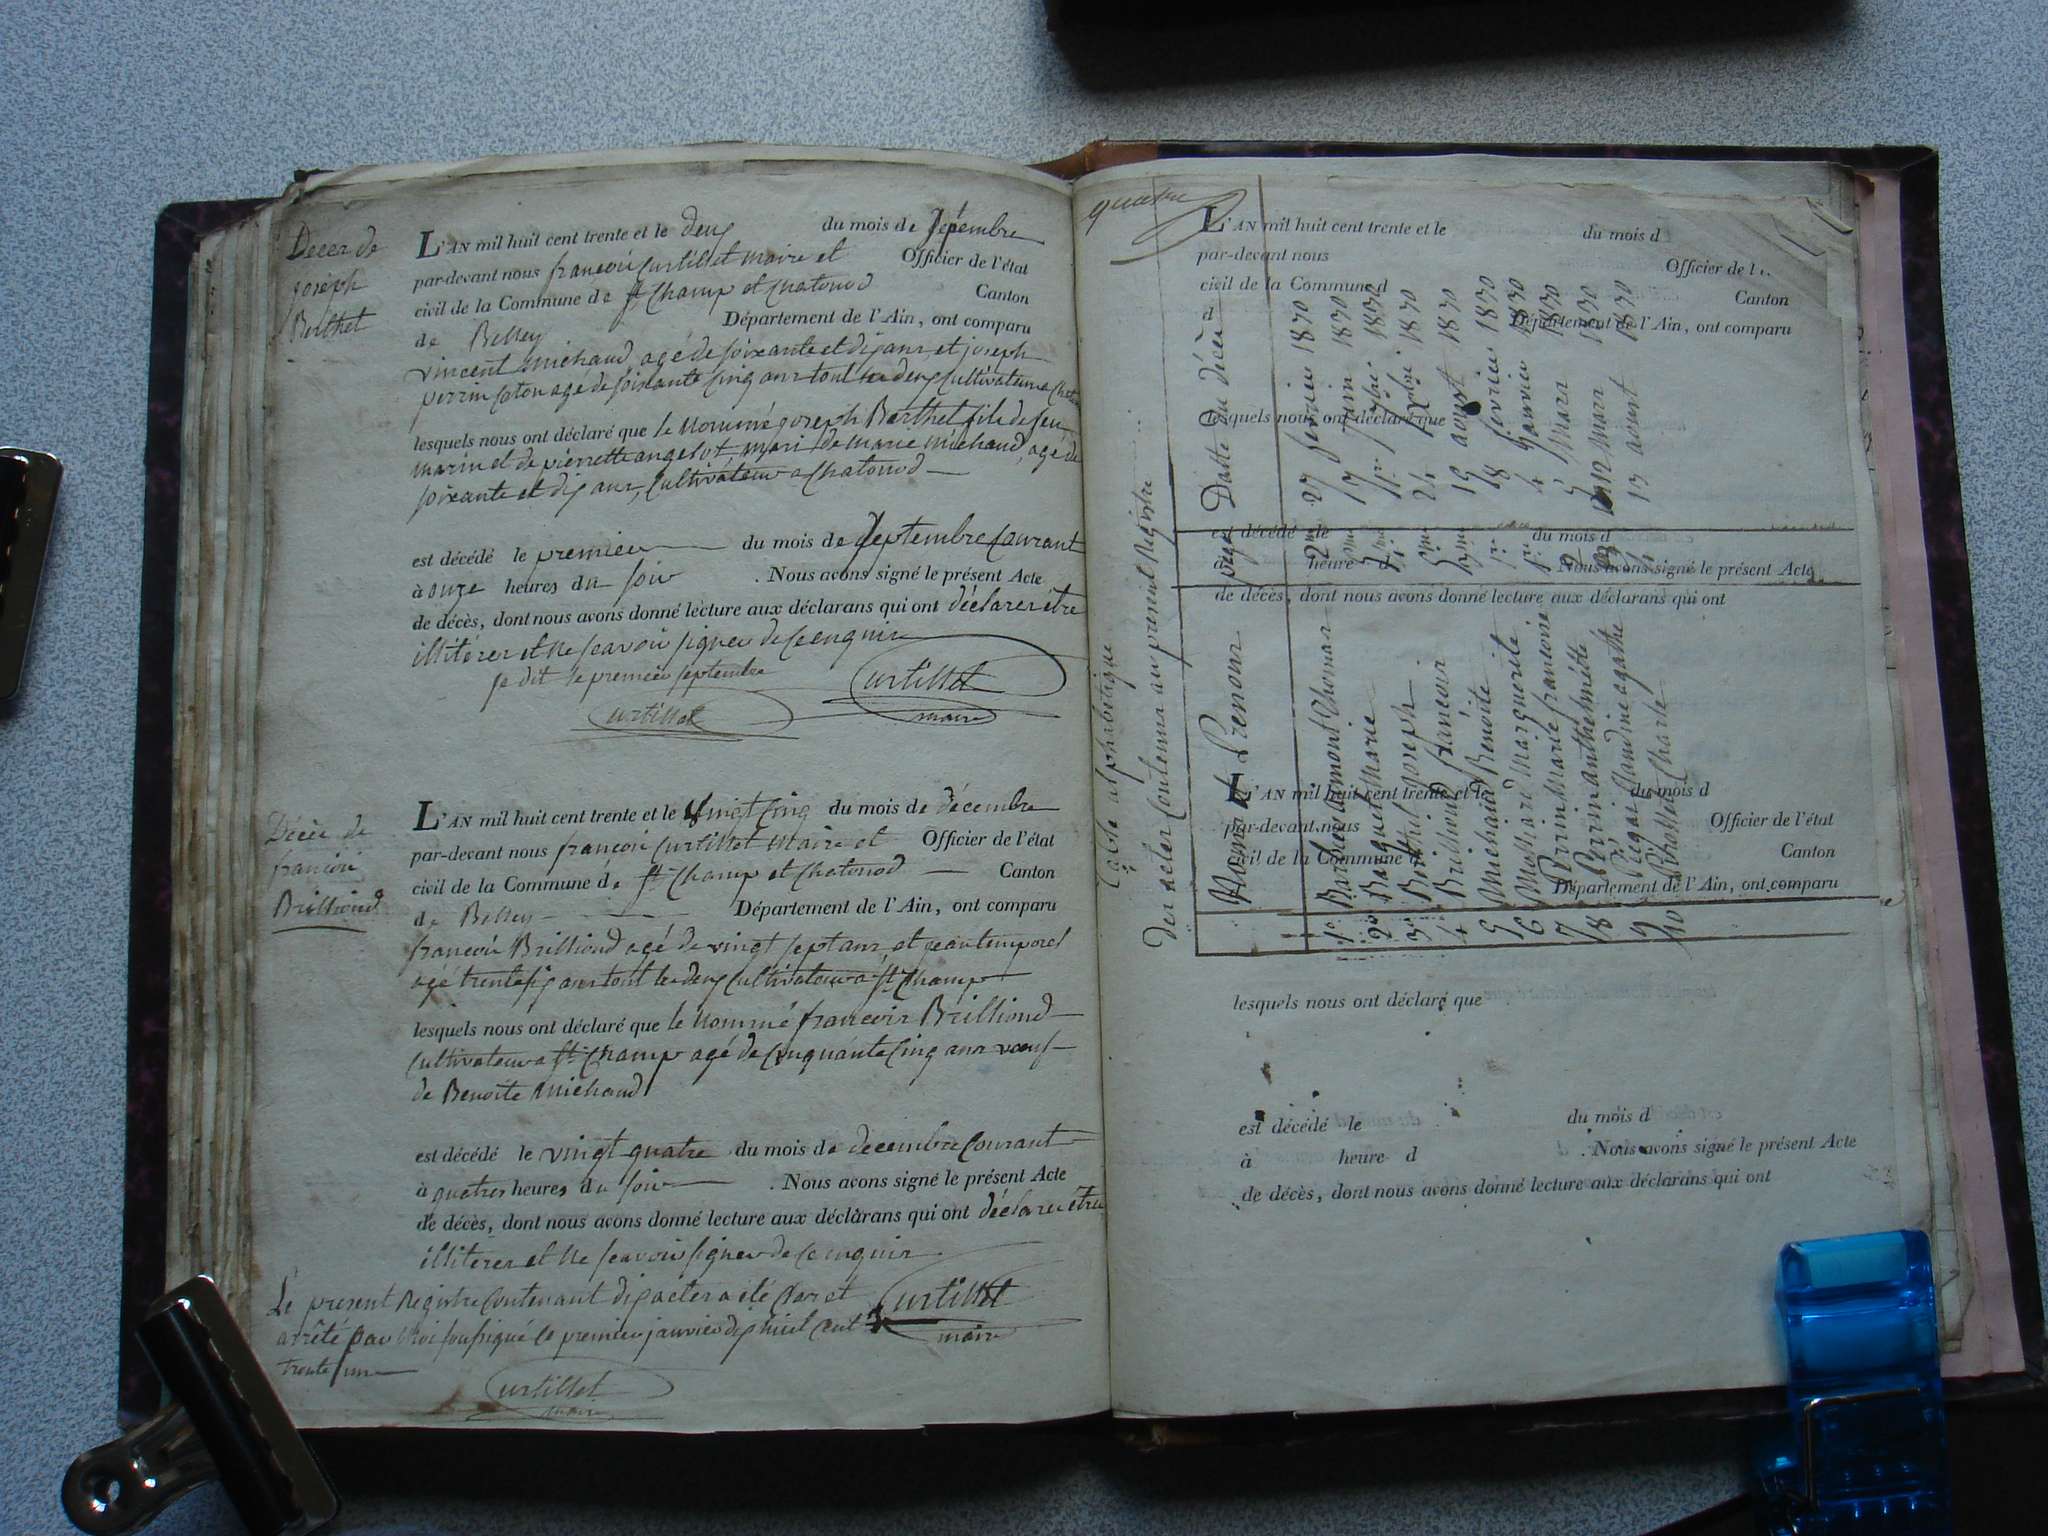 Décès de
joseph
Berthet
L'AN mil huit cent trente et le deux du mois de septembre
par-devant nous francois Curtillet maire et Officier de l'état
civil de la Commune de St Champ et Chatonod Canton
de Belley Département de l'Ain, ont comparu
vincent michaud agé de soixante et dix ans et joseph
perrin agé de soixante cinq ans tout les deux cultivateur a
lesquels nous ont déclaré que le nommé joseph Berthet fils de feu
marin et de pierrette angelot mari de marie michaud, agé de
soixante et dix ans, cultivateur a Chatonod
est décédé le premier du mois de septembre courant
à onze heures du soir . Nous avons signé le présent Acte
de décès, dont nous avons donné lecture aux déclarans qui ont déclarer être
illitérer et ne scavoir signer de ce enquir
je dit le premier septembre Curtillet
Curtillet maire
Décès de
francois
Brilliond
L'AN mil huit cent trente et le vingt cinq du mois de décembre
par-devant nous francois Curtillet maire et Officier de l'état
civil de la Commune de St Champ et Chatonod Canton
de Belley Département de l'Ain, ont comparu
francois Brilliond agé de vingt sept ans et jean temporel
agé trente six ans tout les deux cultivateur a St Champ
lesquels nous ont déclaré que le nommé francois Brilliond
cultivateur a St Champ agé de cinquante cinq ans voeuf
de Benoite michaud
est décédé le vingt quatre du mois de decembre courant
à quatres heures du soir . Nous avons signé le présent Acte
de décès, dont nous avons donné lecture aux déclarans qui ont déclarer être
illiterer et ne scavoir signer de ce enquir
Le present Registre contenant dix actes a été clos et Curtillet
arrêté par moi soussigné le premier janvier dix huit cent maire
trente un
Curtillet
maire
L'AN mil huit cent trente et le du mois d
par-devant nous Officier de l'
civil de la Commune d Canton
d Département de l'Ain, ont comparu
lesquels nous ont déclaré que
est décédé le du mois d
à heure d . Nous avons signé le présent Acte
de décès, dont nous avons donné lecture aux déclarans qui ont
L'AN mil huit cent trente et le du mois d
par-devant nous Officier de l'état
civil de la Commune d Canton
Département de l'Ain, ont comparu
lesquels nous ont déclaré que
est décédé le du mois d
à heure d . Nous avons signé le présent Acte
de décès, dont nous avons donné lecture aux déclarans qui ont
Table alphabetique
Des actes Contenus au present Registre
Noms et Prenoms page Datte du décès
1° Thomas 2me 27 fevrier 1830
2° Marie 17 juin 1830
3° Berthet joseph 1er 7bre 1830
4 Brilliond francois 24 Xbre 1830
5 Michaud Benoite 19 aoust 1830
6 Marguerite 1re 8 fevrier 1830
7 Perrin Marie francoise 1re 4 janvier 1830
8 Perrin anthelmette 2 5 Mars 1830
9 Claudine agathe 12 Mars 1830
10 Charle 13 aoust 1830